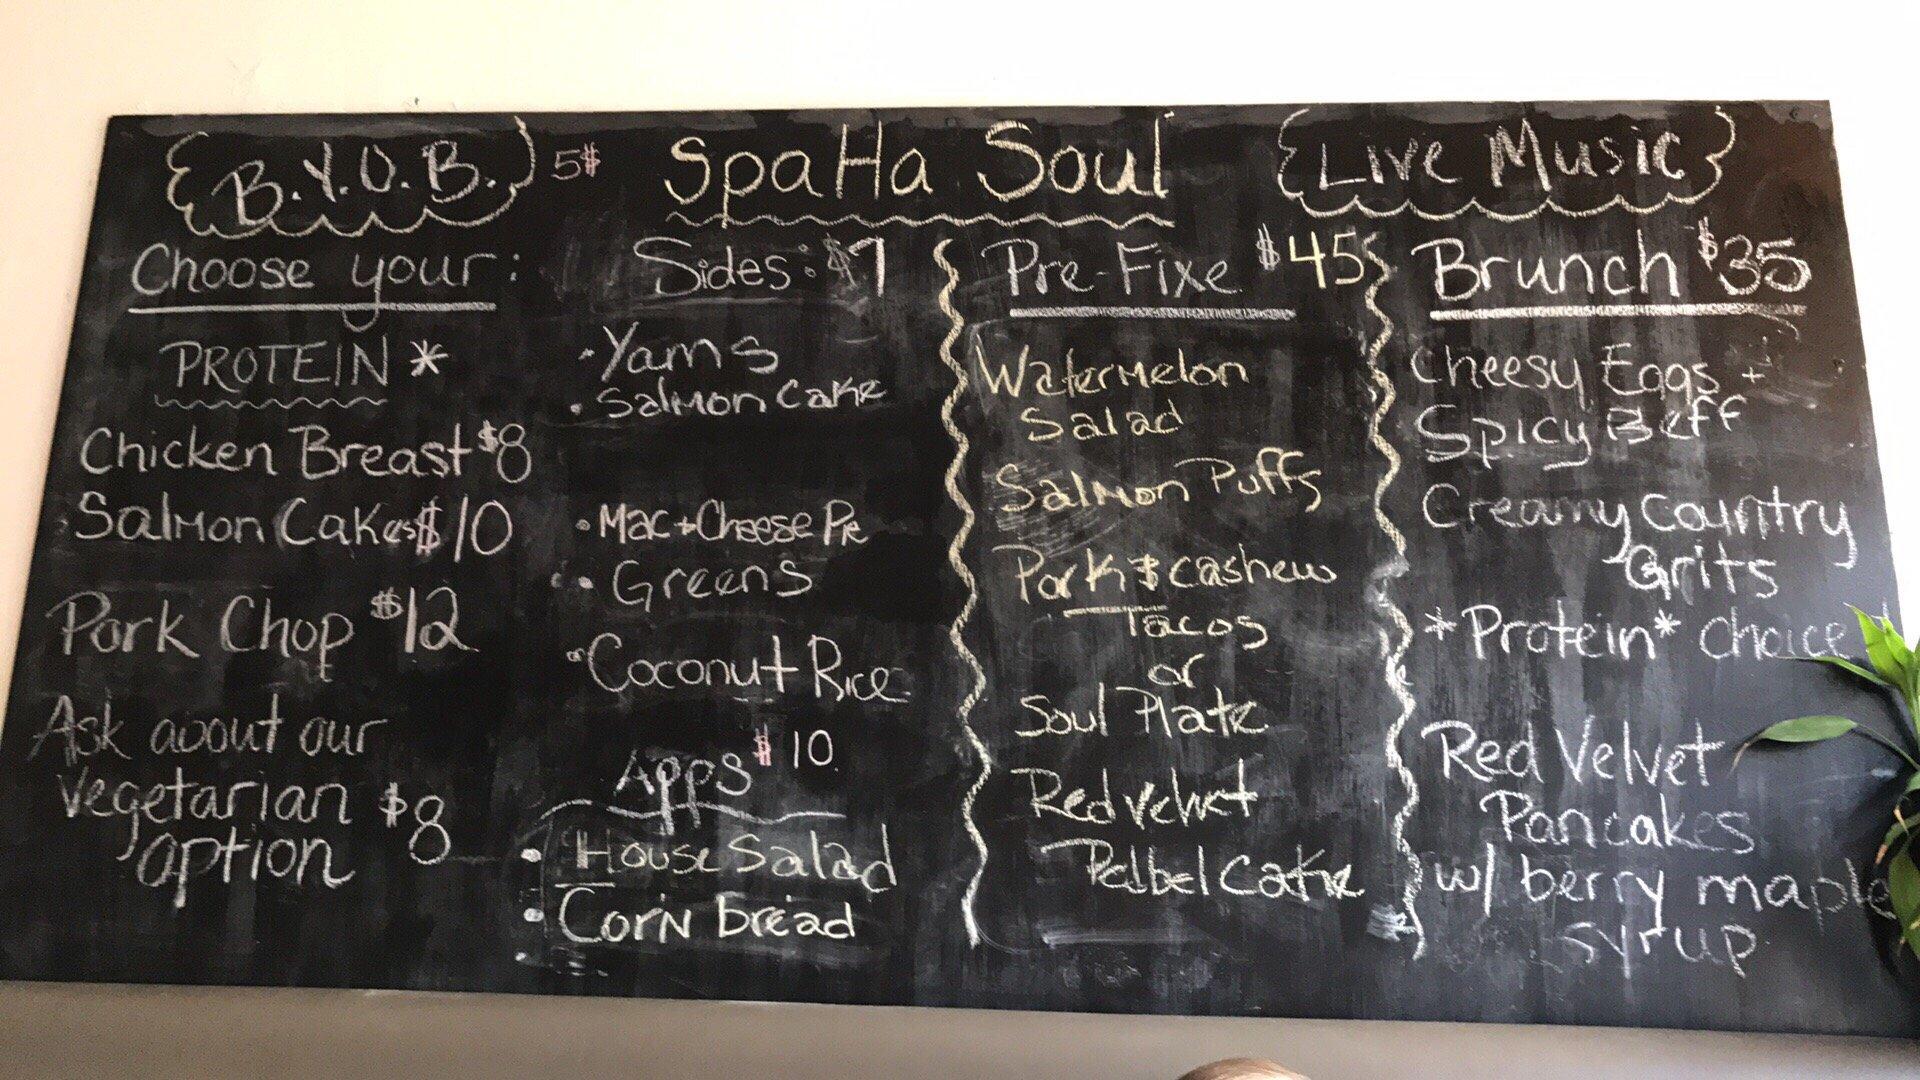 B.Y.O.B. 5$
SpaHa Soul
Live Music
Choose your:
PROTEIN *
Chicken Breast $8
Salmon Cakes $10
Pork Chop $12
Ask about our
vegetarian $8
option
Sides: $7
• Yams
• Salmon Cake
• Mac + Cheese Pie
• Greens
• Coconut Rice
Apps $10
• House Salad
• Corn bread
Pre-Fixe $45
Watermelon
Salad
Salmon Puffs
Pork & cashew
Tacos
or
Soul Plate
Red velvet
Cake
Brunch $35
Cheesy Eggs +
Spicy Beff
Creamy Country
Grits
*Protein* choice
Red Velvet
Pancakes
w/ berry maple
syrup